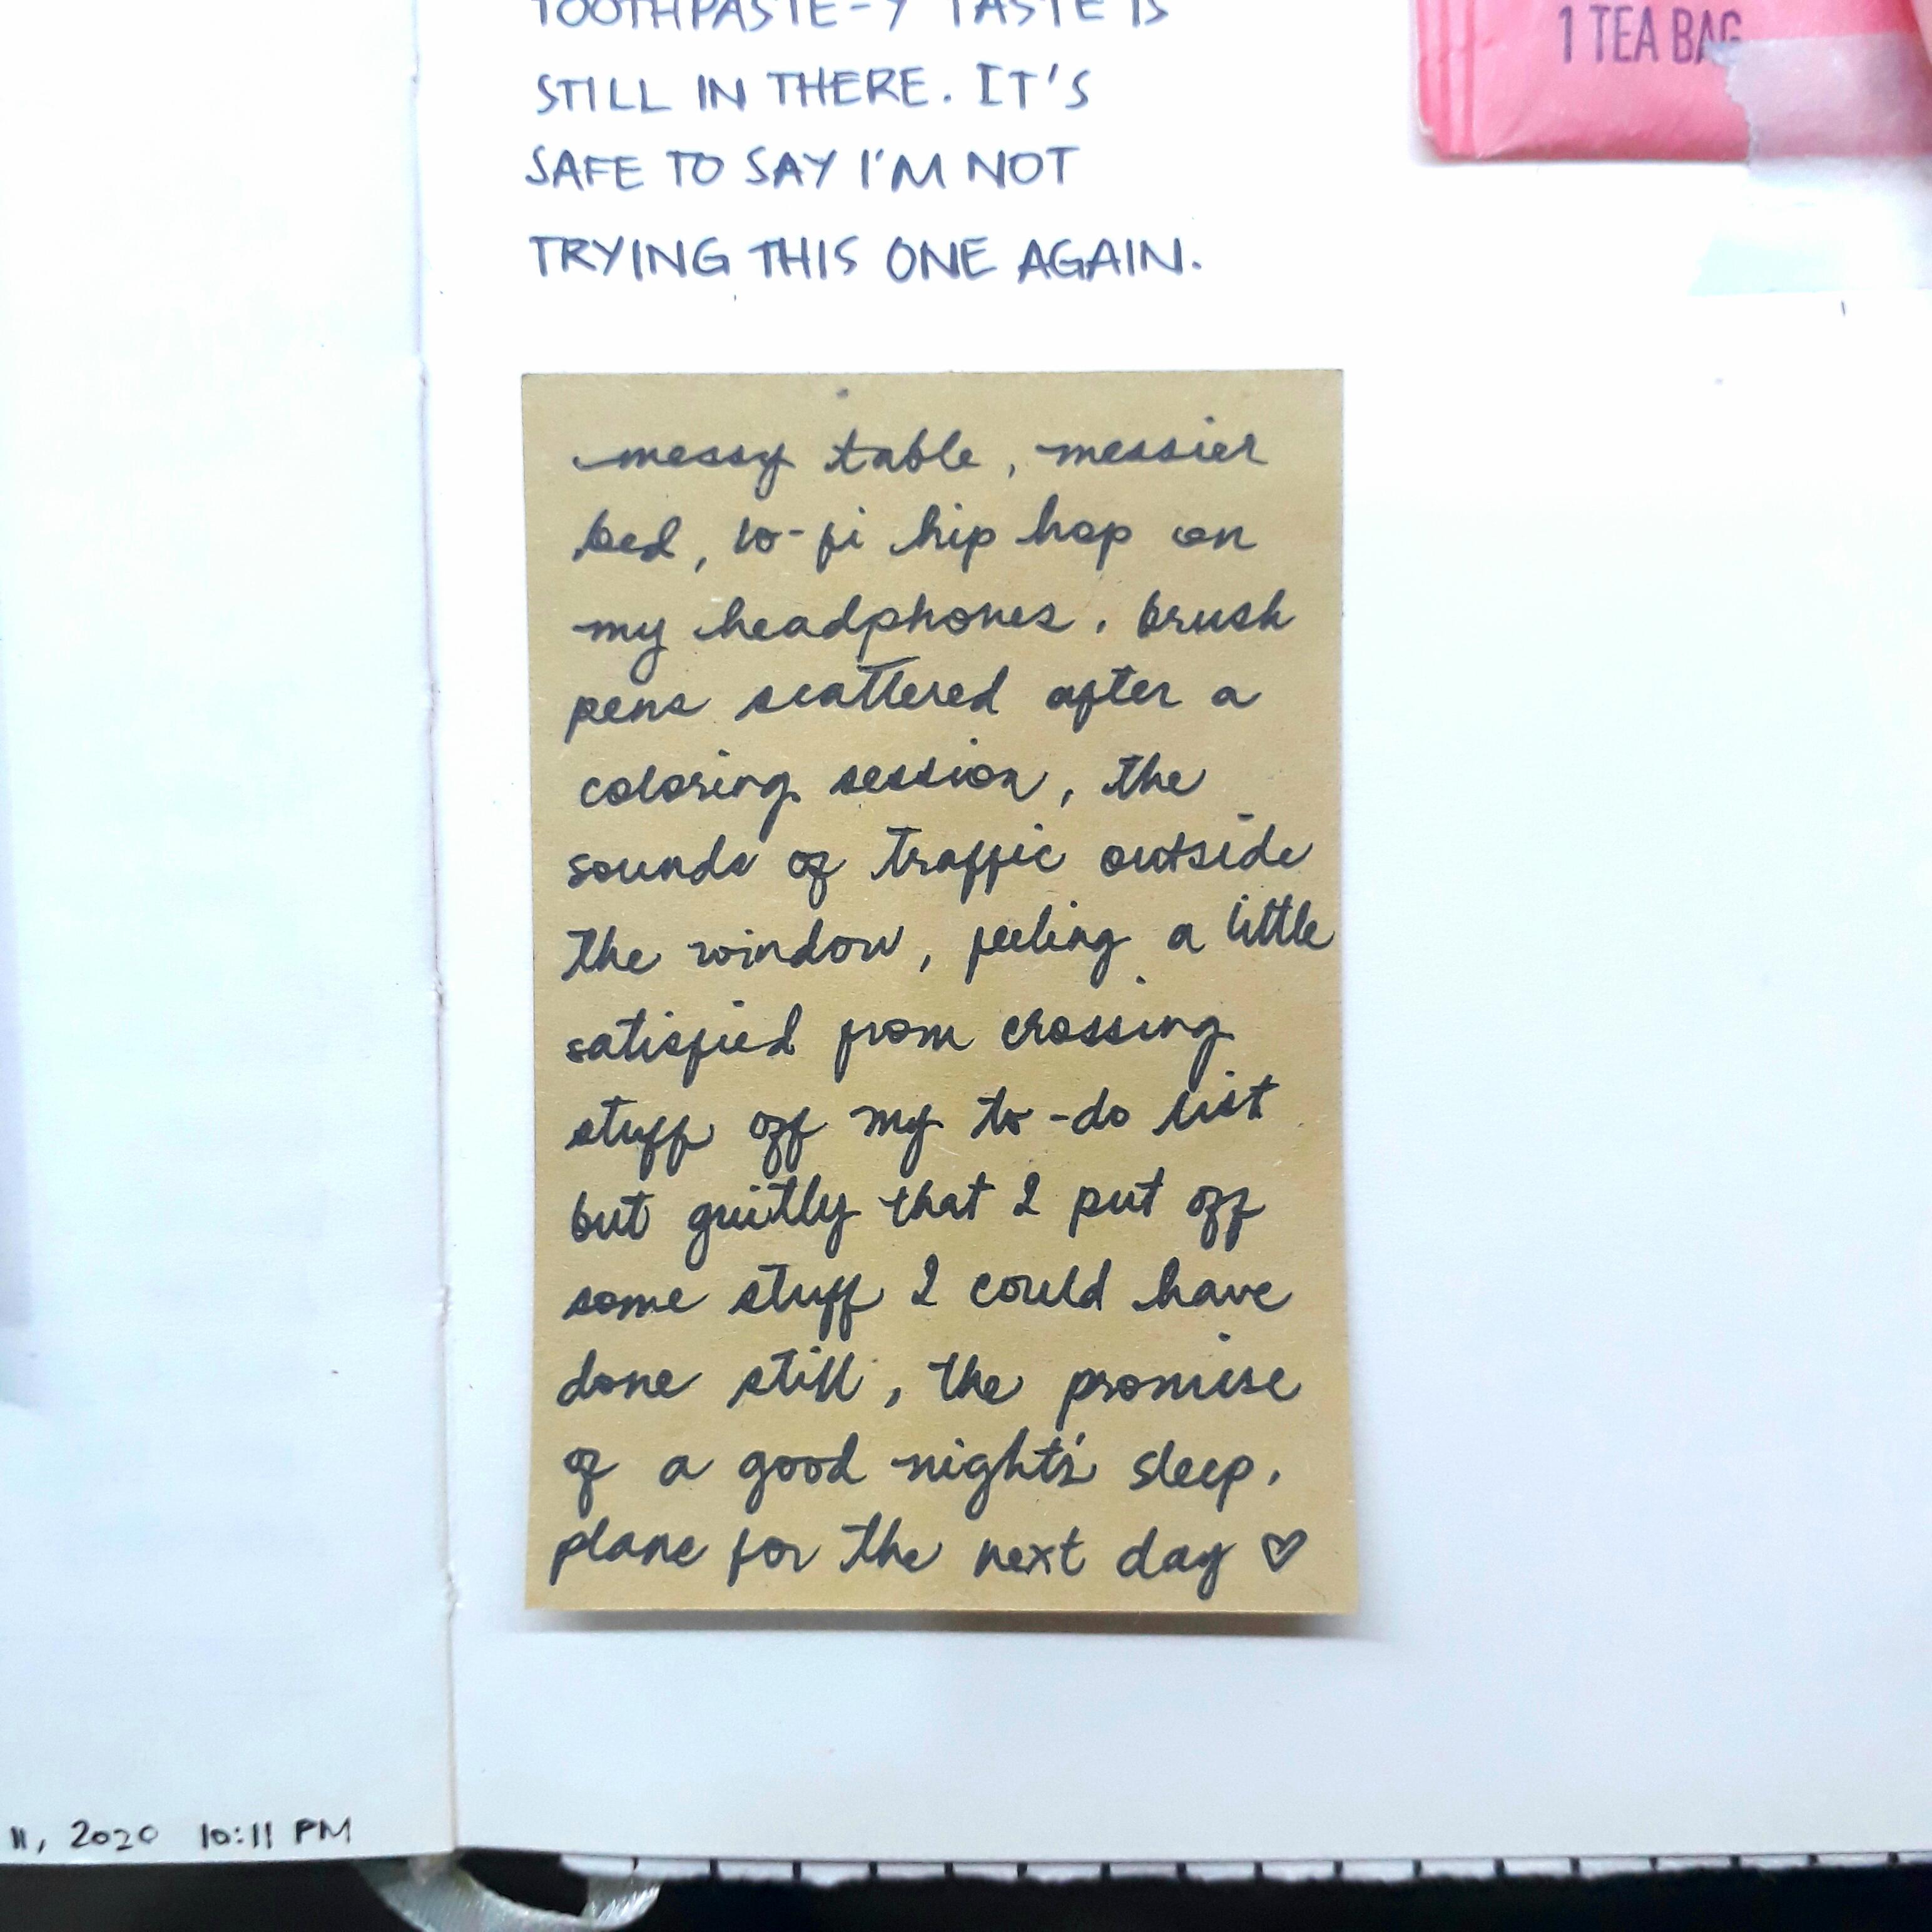 TOOTHPASTE-Y TASTE IS
STILL IN THERE. IT'S
SAFE TO SAY I'M NOT
TRYING THIS ONE AGAIN.
1 TEA BAG
messy table, messier
bed, lo-fi hip hop on
my headphones, brush
pens scattered after a
coloring session, the
sounds of traffic outside
the window, feeling a little
satisfied from crossing
stuff off my to-do list
but guiltly that I put off
some stuff I could have
done still, the promise
of a good night's sleep,
plans for the next day ♡
11, 2020 10:11 PM